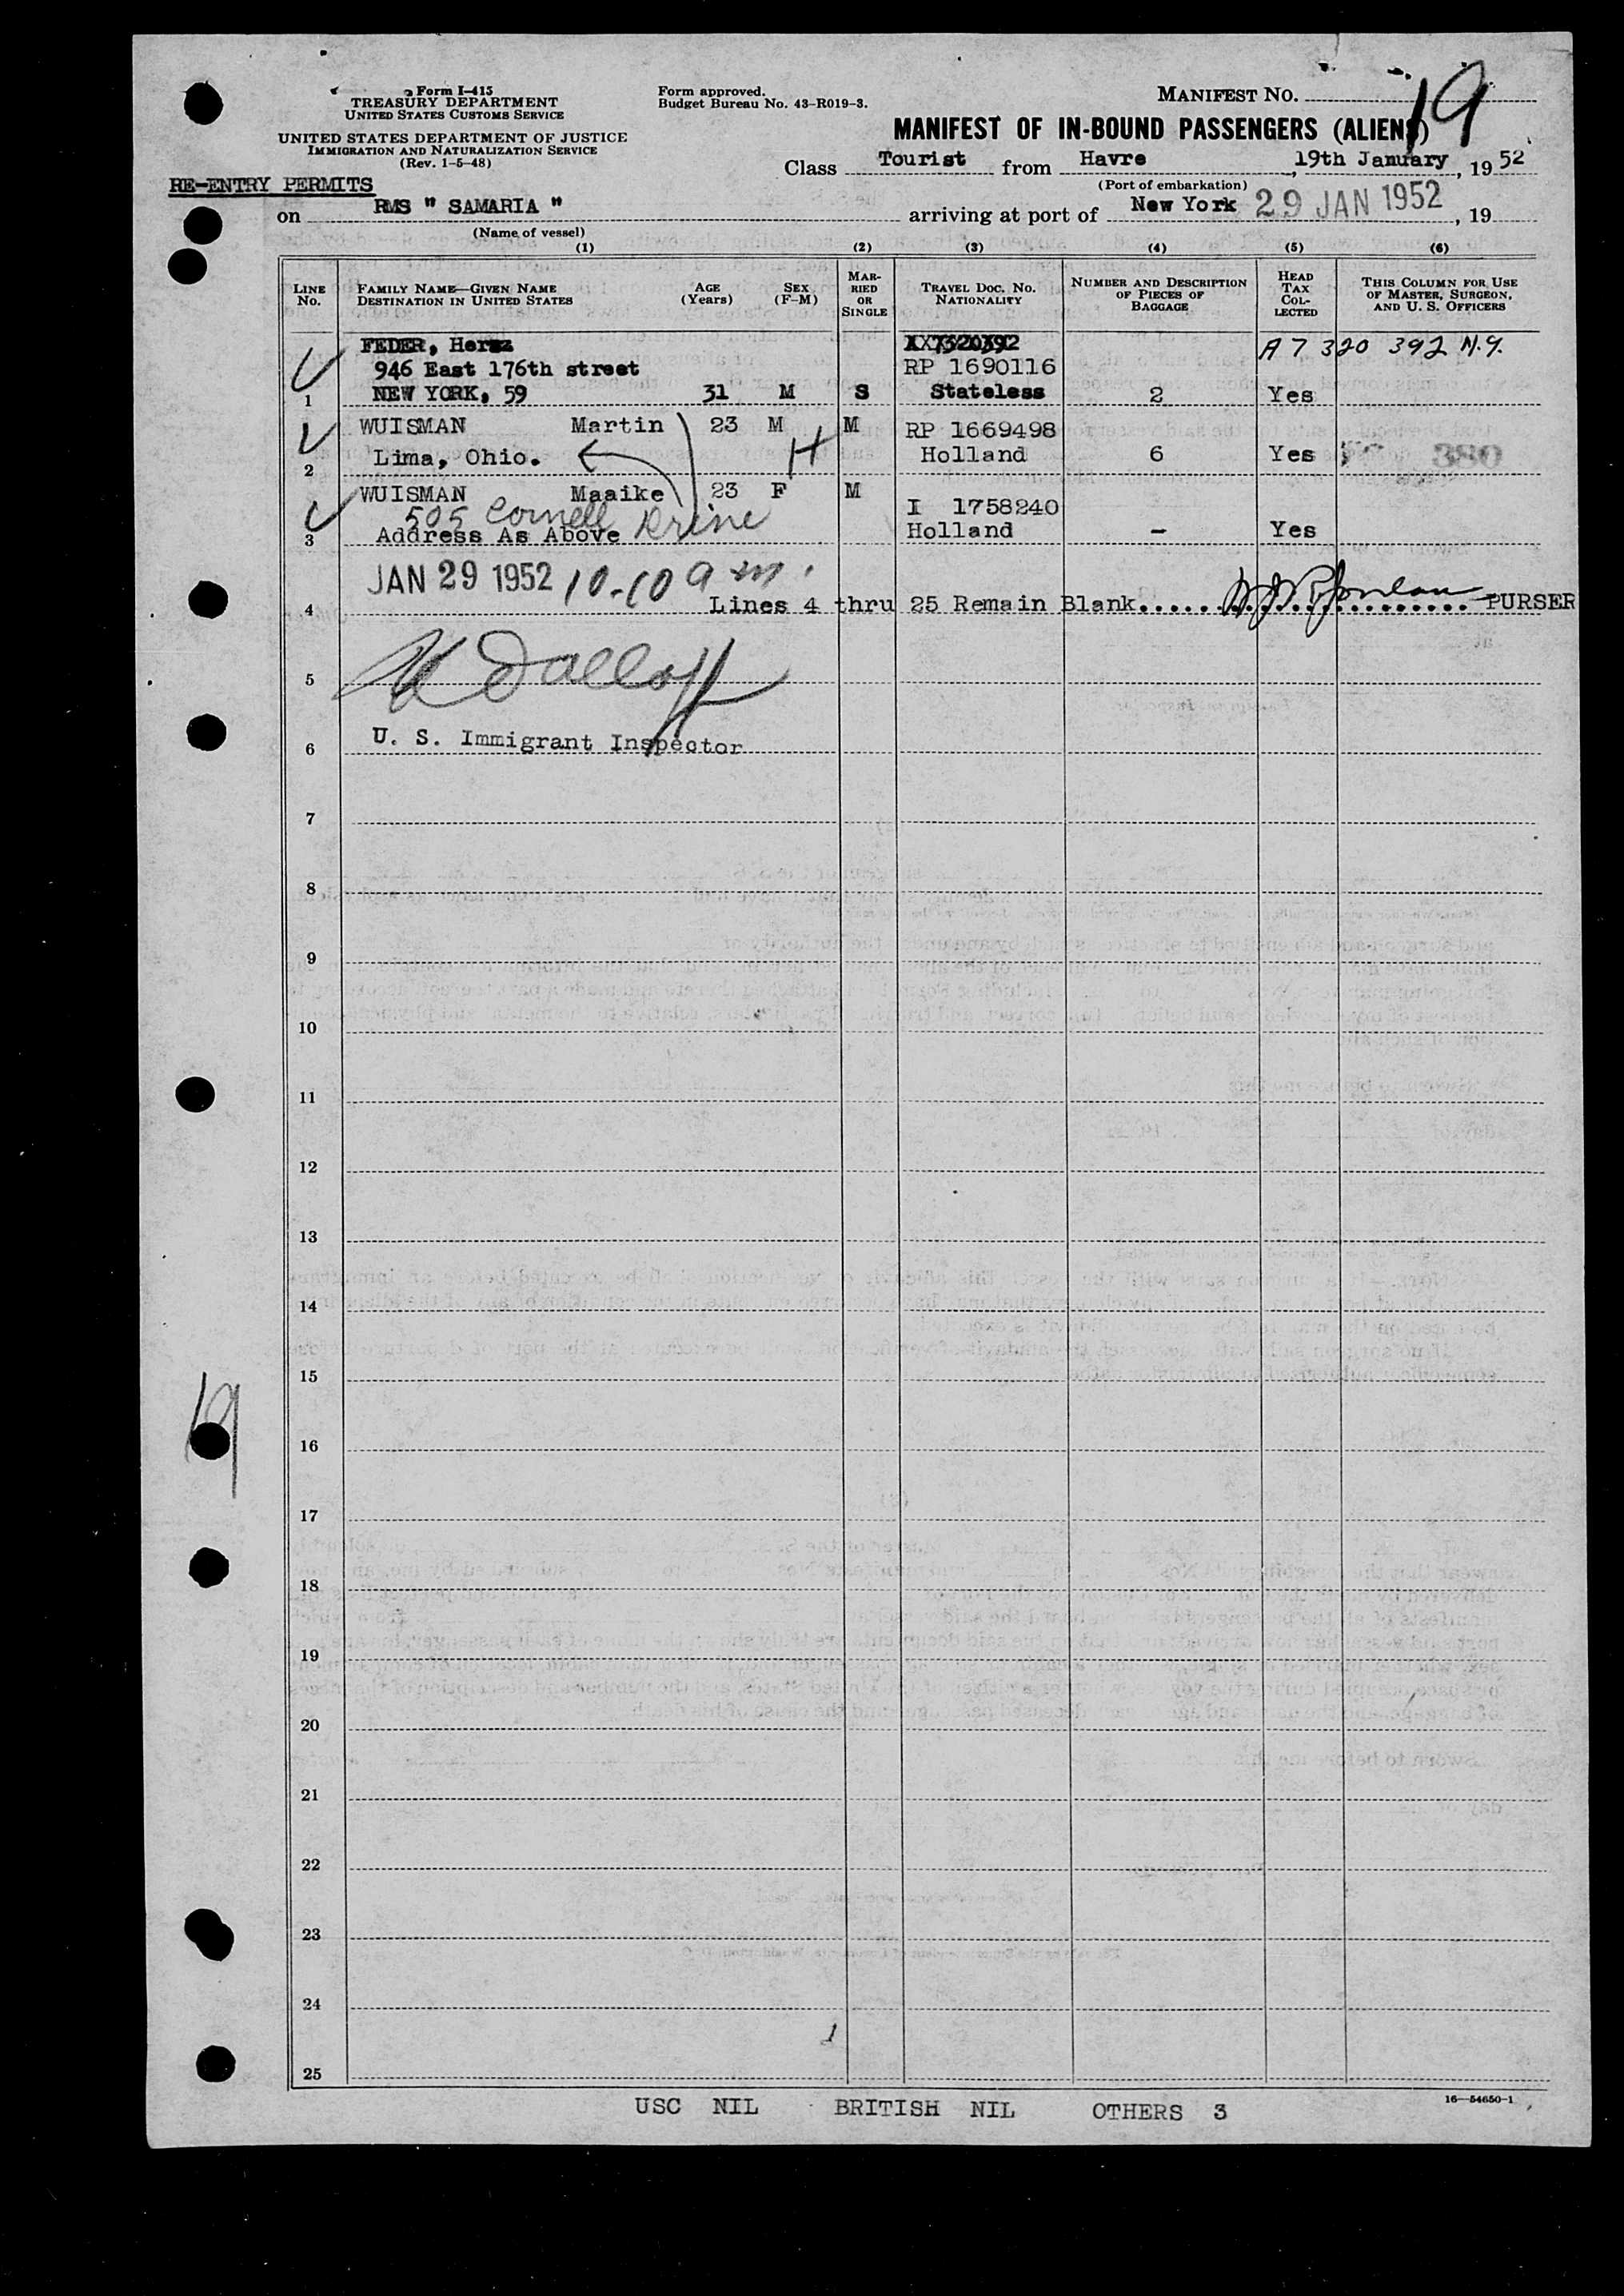 Form I-415
TREASURY DEPARTMENT
UNITED STATES CUSTOMS SERVICE
UNITED STATES DEPARTMENT OF JUSTICE
IMMIGRATION AND NATURALIZATION SERVICE
(Rev. 1-5-48)
Form approved.
Budget Bureau No. 43-R019-3.
MANIFEST NO. 19
MANIFEST OF IN-BOUND PASSENGERS (ALIENS)
Class Tourist from Havre, 19th January, 1952
(Port of embarkation)
RE-ENTRY PERMITS
on RMS " SAMARIA " arriving at port of New York 29 JAN 1952, 19
(Name of vessel)
(1) (2) (3) (4) (5) (6)
LINE No. FAMILY NAME—GIVEN NAME DESTINATION IN UNITED STATES AGE (Years) SEX (F-M) MARRIED OR SINGLE TRAVEL DOC. NO. NATIONALITY NUMBER AND DESCRIPTION OF PIECES OF BAGGAGE HEAD TAX COLLECTED THIS COLUMN FOR USE OF MASTER, SURGEON, AND U. S. OFFICERS
FEDER, Hersz A 7 320 392 N.Y.
946 East 176th street RP 1690116
1 NEW YORK, 59 31 M S Stateless 2 Yes
WUISMAN Martin 23 M M RP 1669498
2 Lima, Ohio. H Holland 6 Yes 380
WUISMAN Maaike 23 F M I 1758240
505 Cornell Drive
3 Address As Above Holland - Yes
JAN 29 1952 10-10 am.
4 Lines 4 thru 25 Remain Blank PURSER
5
6 U. S. Immigrant Inspector
7
8
9
10
11
12
13
14
15
19
16
17
18
19
20
21
22
23
24
1
25
USC NIL BRITISH NIL OTHERS 3
16—54650-1